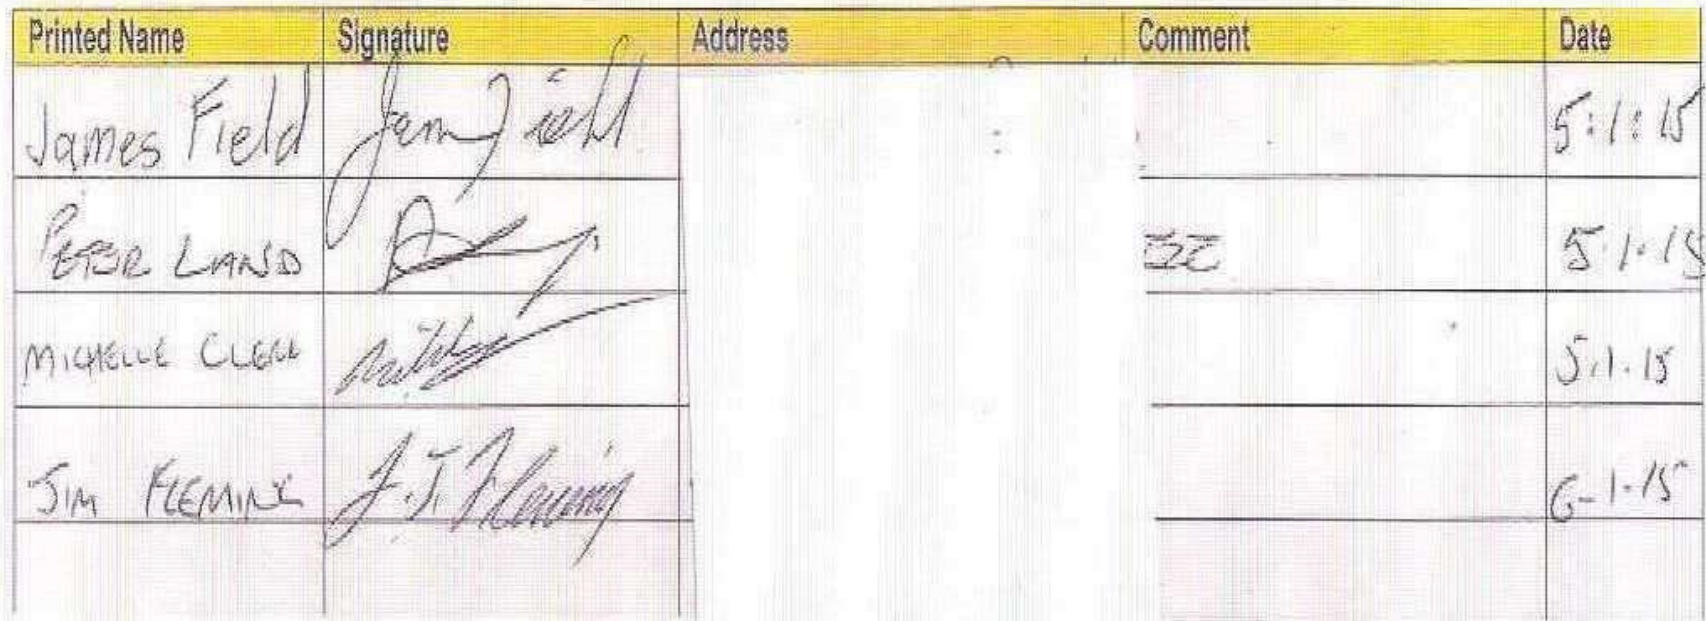 Printed Name Signature Address Comment Date
James Field 5:1:15
PETER LAND 5.1.15
MICHELLE CLERK 5.1.15
JIM FLEMING J.J. Fleming 6-1.15